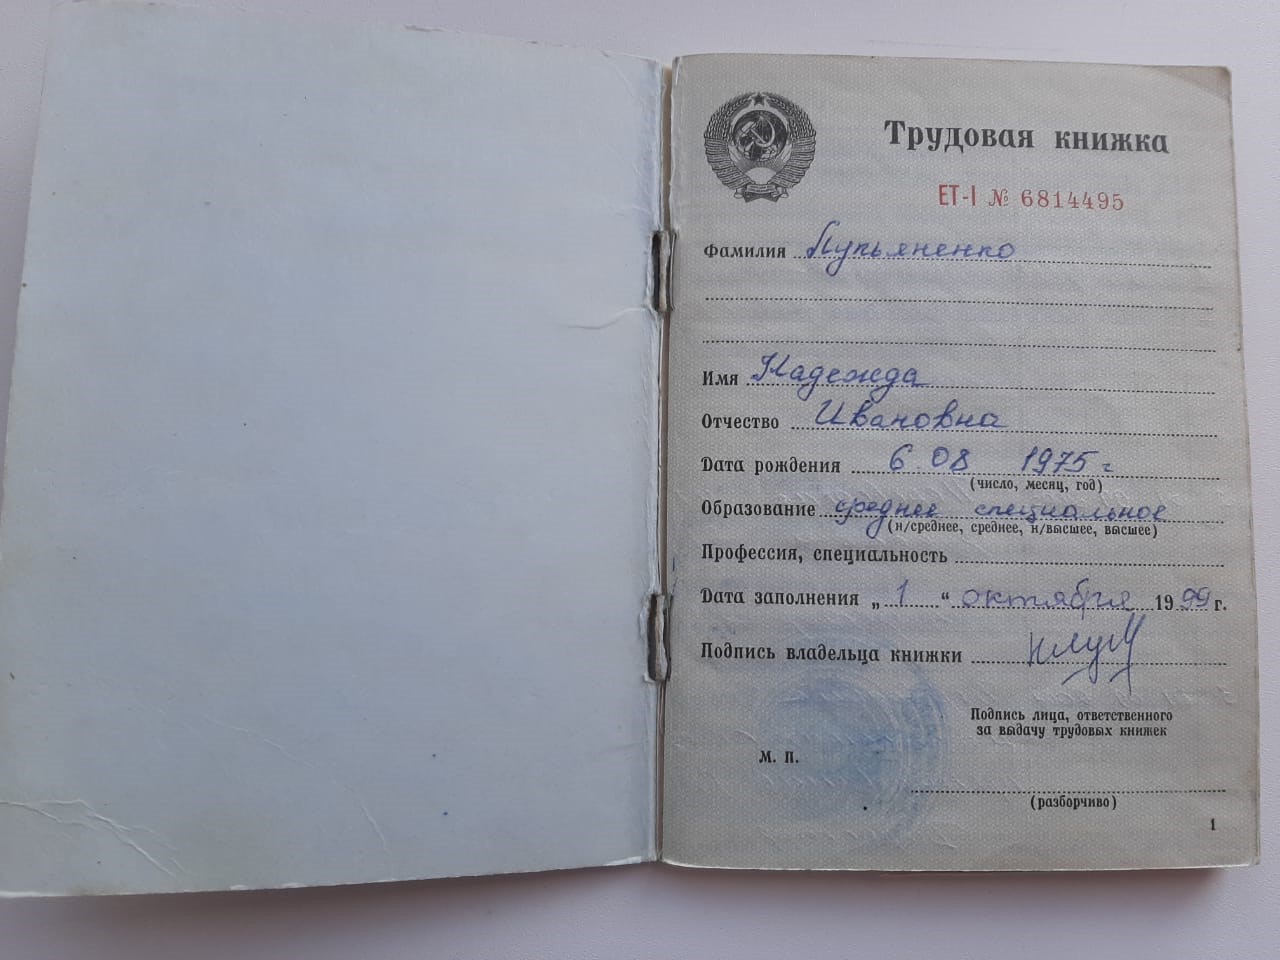 Трудовая книжка
ЕТ-I № 6814495
Фамилия Лукьяненко
Имя Надежда
Отчество Ивановна
Дата рождения 6 08 1975 г
(число, месяц, год)
Образование среднее специальное
(н/среднее, среднее, н/высшее, высшее)
Профессия, специальность
Дата заполнения „ 1 “ октября 19 99 г.
Подпись владельца книжки
Подпись лица, ответственного
за выдачу трудовых книжек
М. П.
(разборчиво)
1